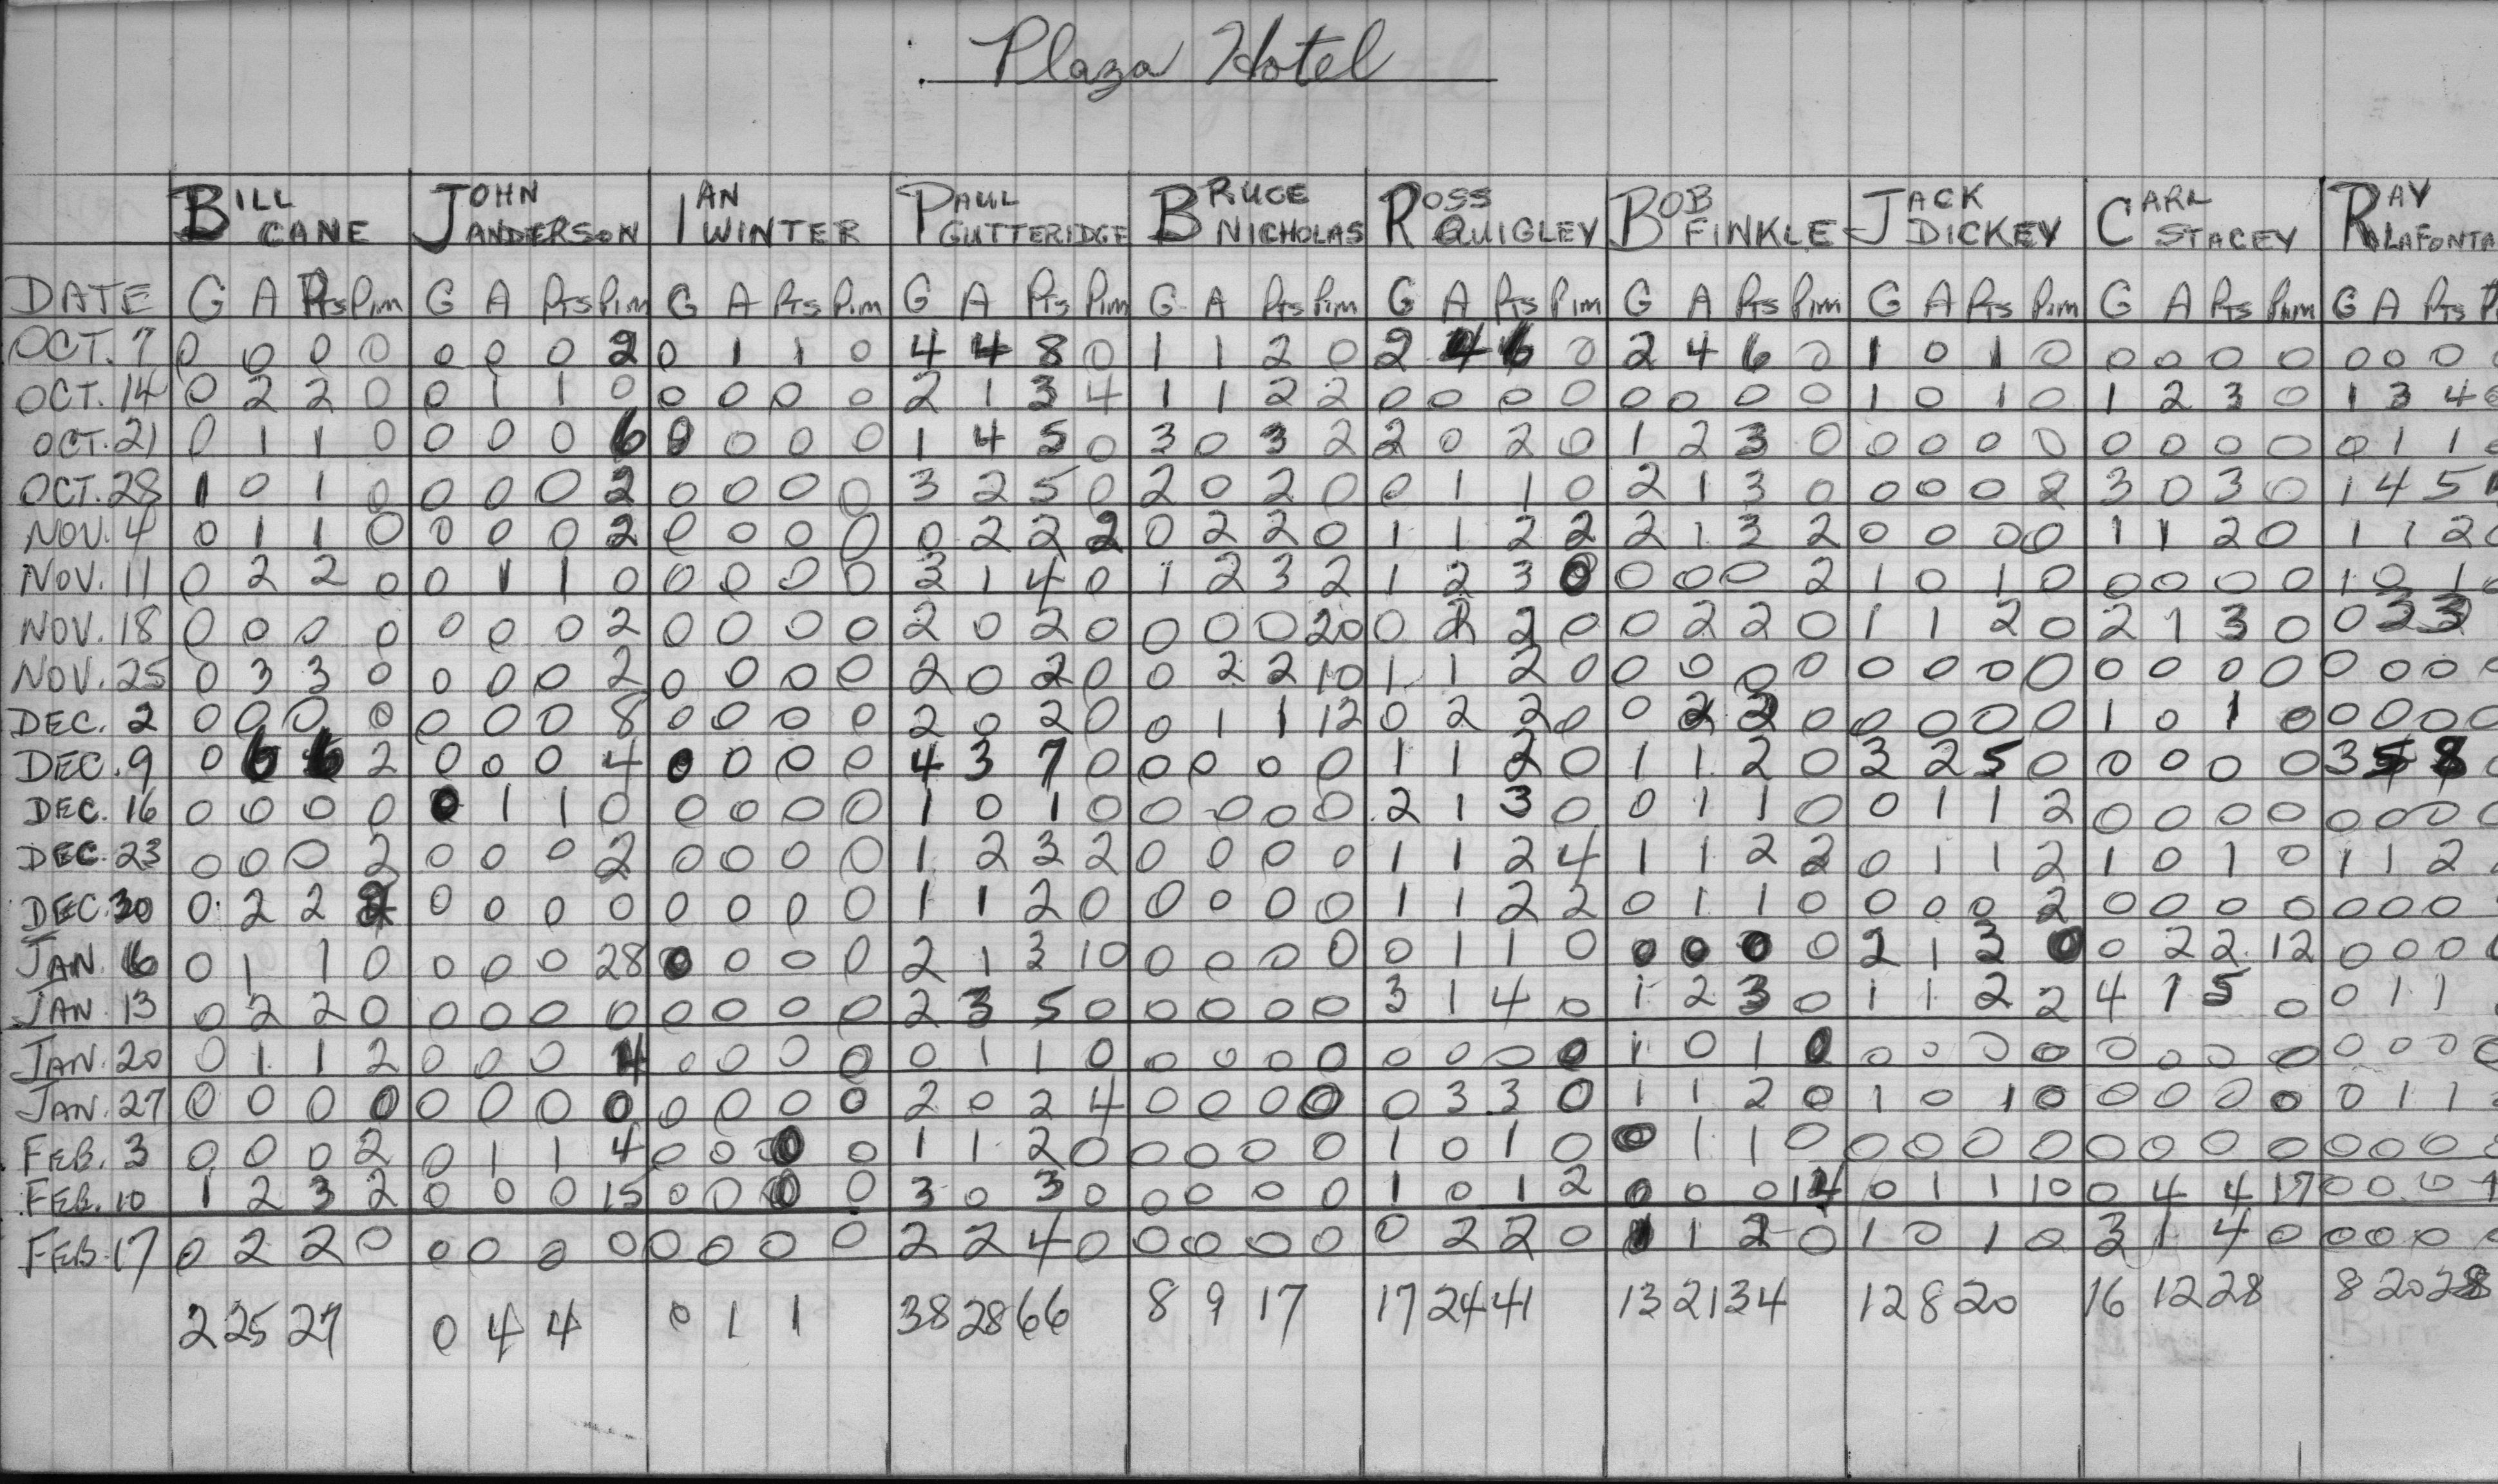 Plaza Hotel
BILL CANE JOHN ANDERSON IAN WINTER PAUL GUTTERIDGE BRUCE NICHOLAS ROSS QUIGLEY BOB FINKLE JACK DICKEY CARL STACEY RAY LAFONTA
DATE G A Pts Pim G A Pts Pim G A Pts Pim G A Pts Pim G A Pts Pim G A Pts Pim G A Pts Pim G A Pts Pim G A Pts Pim G A Pts P
OCT. 7 0 0 0 0 0 0 0 2 0 1 1 0 4 4 8 0 1 1 2 0 2 4 6 0 2 4 6 0 1 0 1 0 0 0 0 0 0 0 0 0
OCT. 14 0 2 2 0 0 1 1 0 0 0 0 0 2 1 3 4 1 1 2 2 0 0 0 0 0 0 0 0 1 0 1 0 1 2 3 0 1 3 4 0
OCT. 21 0 1 1 0 0 0 0 6 0 0 0 0 1 4 5 0 3 0 3 2 2 0 2 0 1 2 3 0 0 0 0 0 0 0 0 0 0 1 1 0
OCT. 28 1 0 1 0 0 0 0 2 0 0 0 0 3 2 5 0 2 0 2 0 0 1 1 0 2 1 3 0 0 0 0 2 3 0 3 0 1 4 5
NOV. 4 0 1 1 0 0 0 0 2 0 0 0 0 0 2 2 2 0 2 2 0 1 1 2 2 2 1 3 2 0 0 0 0 1 1 2 0 1 1 2 0
NOV. 11 0 2 2 0 0 1 1 0 0 0 0 0 3 1 4 0 1 2 3 2 1 2 3 0 0 0 0 2 1 0 1 0 0 0 0 0 1 0 1 0
NOV. 18 0 0 0 0 0 0 0 2 0 0 0 0 2 0 2 0 0 0 0 20 0 2 2 0 0 2 2 0 1 1 2 0 2 1 3 0 0 3 3
NOV. 25 0 3 3 0 0 0 0 2 0 0 0 0 2 0 2 0 0 2 2 10 1 1 2 0 0 0 0 0 0 0 0 0 0 0 0 0 0 0 0 0
DEC. 2 0 0 0 0 0 0 0 8 0 0 0 0 2 0 2 0 0 1 1 12 0 2 2 0 0 2 2 0 0 0 0 0 1 0 1 0 0 0 0 0
DEC. 9 0 6 6 2 0 0 0 4 0 0 0 0 4 3 7 0 0 0 0 0 1 1 2 0 1 1 2 0 3 2 5 0 0 0 0 0 3 5 8 0
DEC. 16 0 0 0 0 0 1 1 0 0 0 0 0 1 0 1 0 0 0 0 0 2 1 3 0 0 1 1 0 0 1 1 2 0 0 0 0 0 0 0 0
DEC. 23 0 0 0 2 0 0 0 2 0 0 0 0 1 2 3 2 0 0 0 0 1 1 2 4 1 1 2 2 0 1 1 2 1 0 1 0 1 1 2
DEC. 30 0 2 2 2 0 0 0 0 0 0 0 0 1 1 2 0 0 0 0 0 1 1 2 2 0 1 1 0 0 0 0 2 0 0 0 0 0 0 0
JAN. 6 0 1 1 0 0 0 0 28 0 0 0 0 2 1 3 10 0 0 0 0 0 1 1 0 0 0 0 0 2 1 3 0 0 2 2 12 0 0 0 0
JAN. 13 0 2 2 0 0 0 0 0 0 0 0 0 2 3 5 0 0 0 0 0 3 1 4 0 1 2 3 0 1 1 2 2 4 1 5 0 0 1 1
JAN. 20 0 1 1 2 0 0 0 4 0 0 0 0 0 1 1 0 0 0 0 0 0 0 0 0 1 0 1 0 0 0 0 0 0 0 0 0 0 0 0 0
JAN. 27 0 0 0 0 0 0 0 0 0 0 0 0 2 0 2 4 0 0 0 0 0 3 3 0 1 1 2 0 1 0 1 0 0 0 0 0 0 1 1
FEB. 3 0 0 0 2 0 1 1 4 0 0 0 0 1 1 2 0 0 0 0 0 1 0 1 0 0 1 1 0 0 0 0 0 0 0 0 0 0 0 0 0
FEB. 10 1 2 3 2 0 0 0 15 0 0 0 0 3 0 3 0 0 0 0 0 1 0 1 2 0 0 0 14 0 1 1 10 0 4 4 17 0 0 0
FEB. 17 0 2 2 0 0 0 0 0 0 0 0 0 2 2 4 0 0 0 0 0 0 2 2 0 1 1 2 0 1 0 1 0 3 1 4 0 0 0 0 0
2 25 27 0 4 4 0 1 1 38 28 66 8 9 17 17 24 41 13 21 34 12 8 20 16 12 28 8 20 28